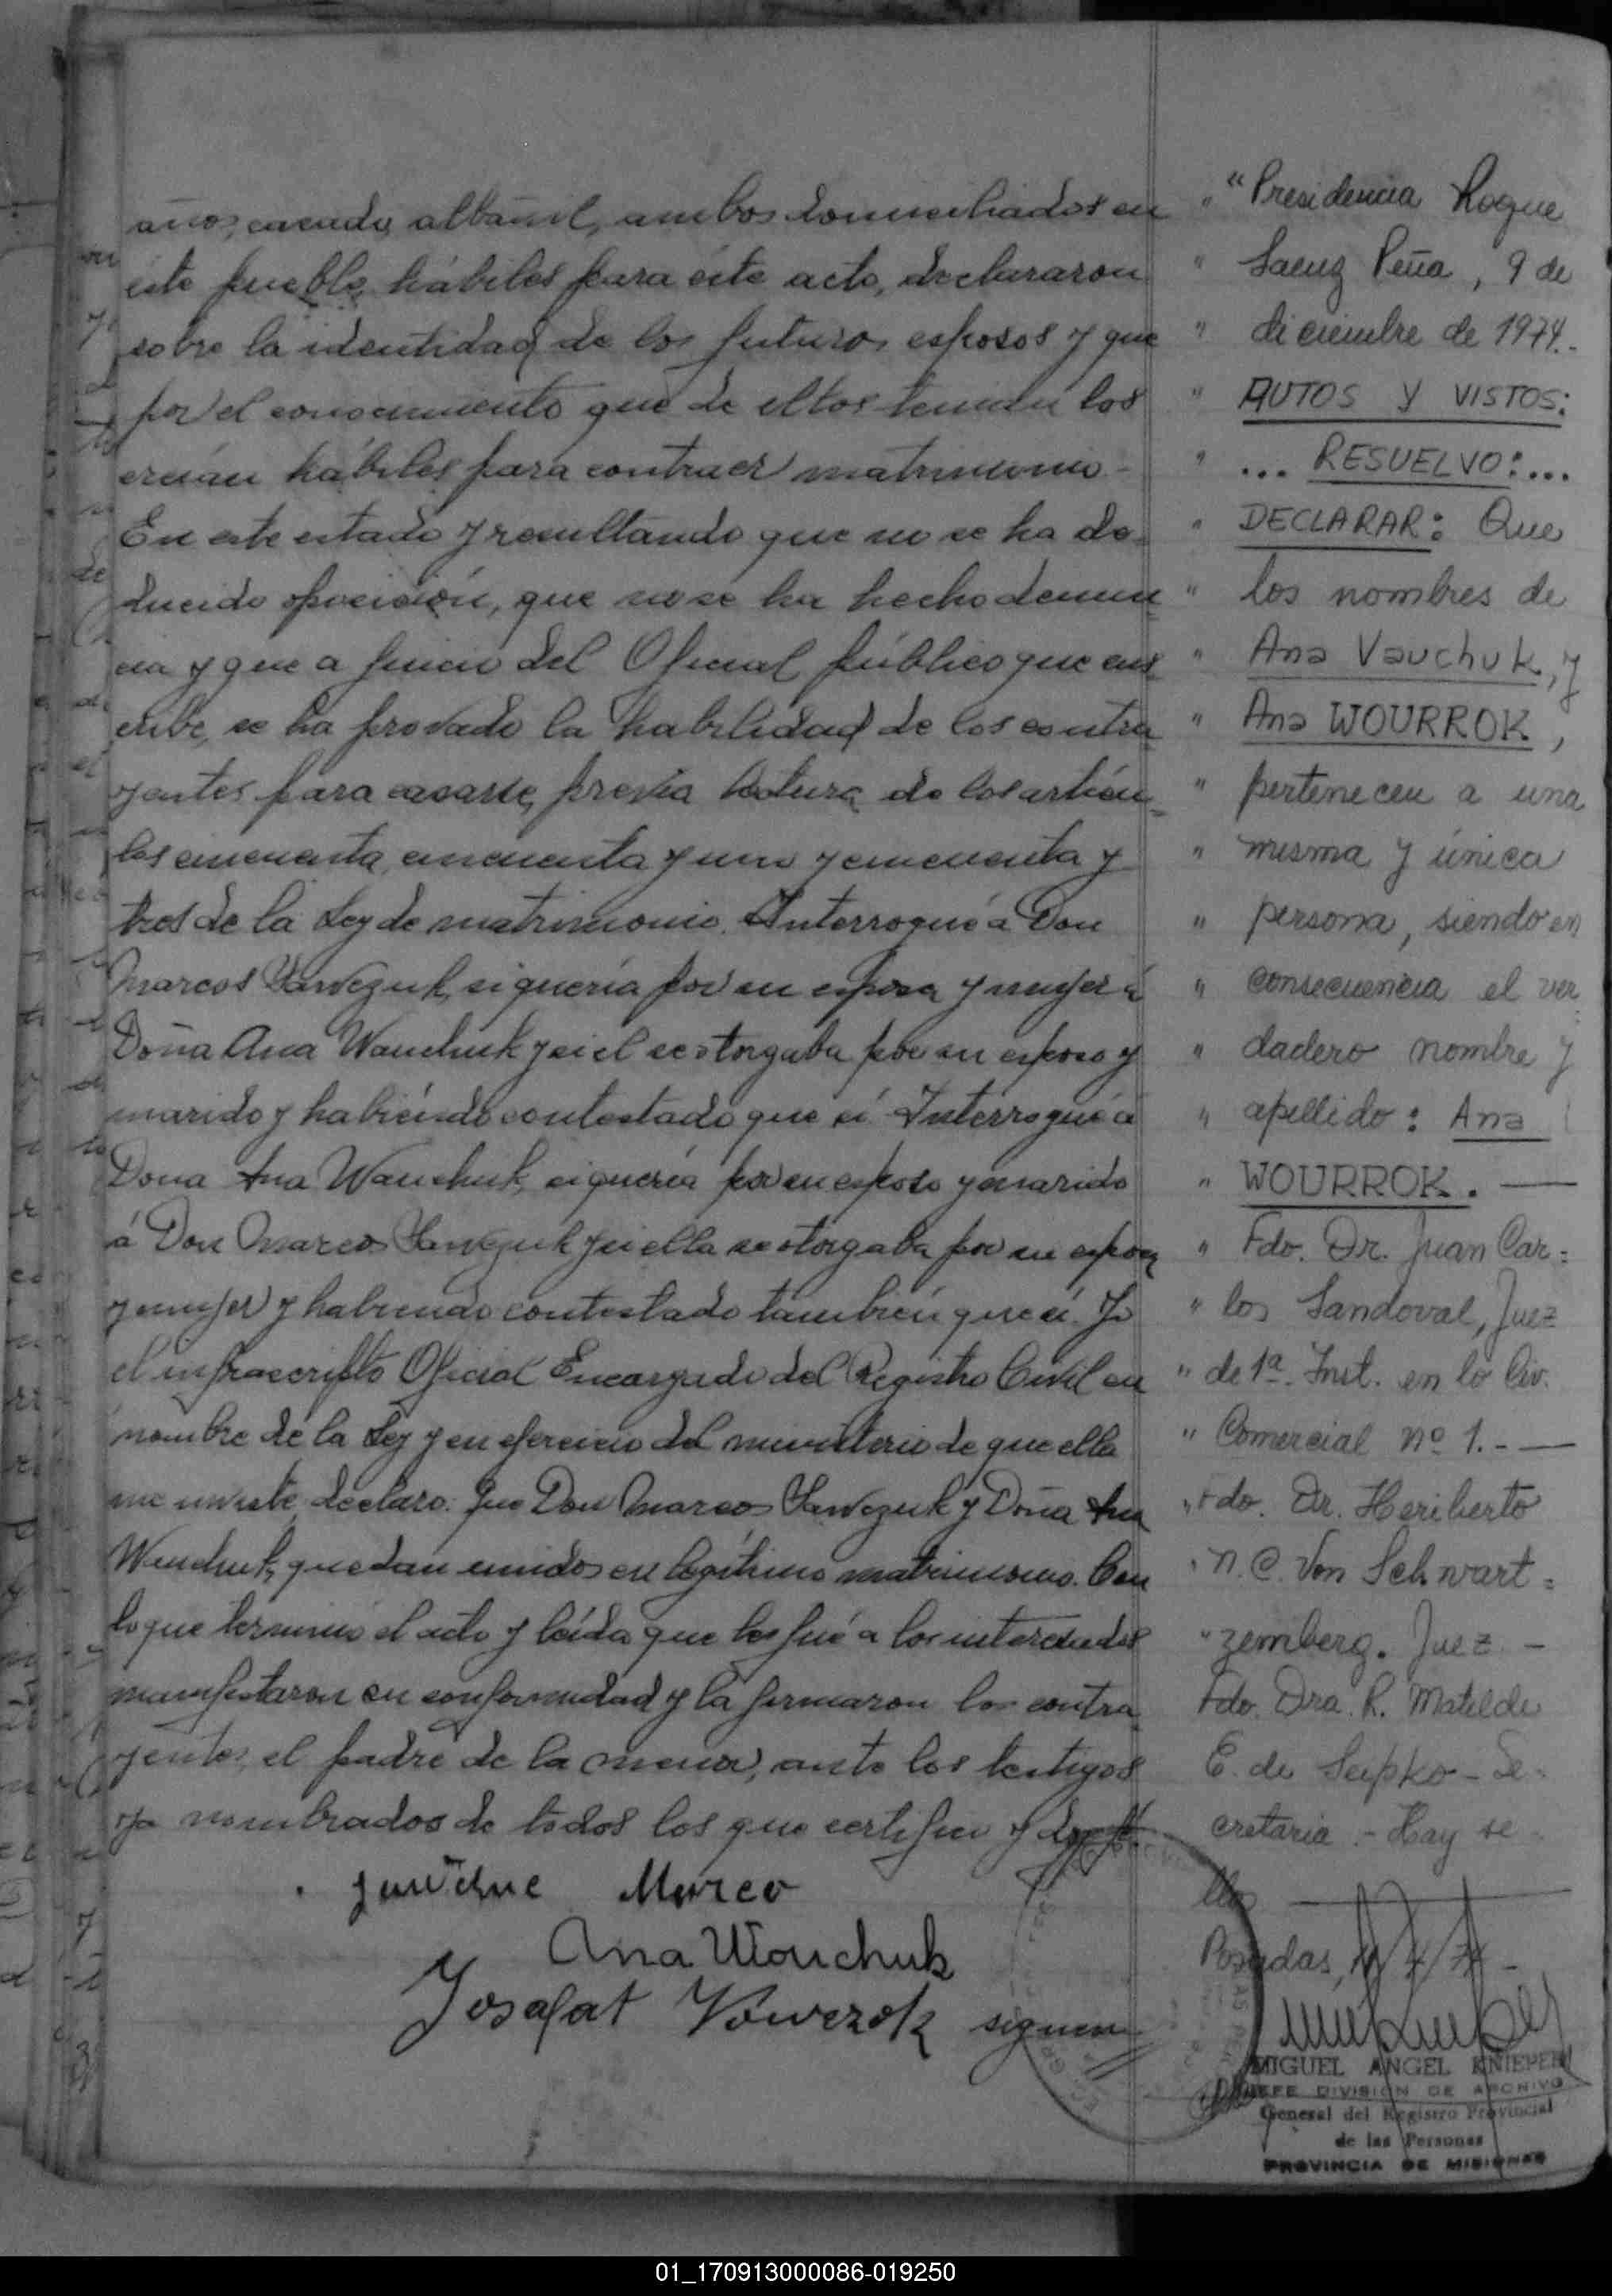 años, casado, albañil, ambos domiciliados en
éste pueblo, hábiles para éste acto, declararon
sobre la identidad de los futuros esposos y que
por el conocimiento que de ellos tenían los
creían hábiles para contraer matrimonio.-
En este estado y resultando que no se ha de-
ducido oposición, que no se ha hecho denun
cia y que a juicio del Oficial público que sus
cribe, se ha provado la habilidad de los contra
yentes para casarse, previa lectura de los artícu
los cincuenta, cincuenta y uno y cincuenta y
tres de la Ley de matrimonio. Interrogué a Don
Marcos Sawczuk, si quería por su esposa y mujer á
Doña Ana Wauchuk y si el se otorgaba por su esposo y
marido y habiéndo contestado que sí. Interrogué a
Doña Ana Wauchuk, si quería por su esposo y marido
á Don Marcos Sawczuk y si ella se otorgaba por su esposa
y mujer y habiendo contestado también que si. Yo
el infrascripto Oficial Encargado del Registro Civil en
nombre de la Ley y en ejercicio del ministerio de que ella
me inviste, declaro: Que Don Marcos Sawczuk y Doña Ana
Wauchuk, quedan unidos en legítimo matrimonio. Con
lo que terminó el acto y leída que les fué a los interesados
manifestaron su conformidad y la firmaron los contra
yentes, el padre de la menor, ante los testigos
ya nombrados de todos los que certifico y doy fé.
Marco
Ana Wouchuk
Josafat Vowczok siguen
" "Presidencia Roque
" Saenz Peña, 9 de
" diciembre de 1974.-
" AUTOS Y VISTOS:
" ... RESUELVO: ...
" DECLARAR: Que
" los nombres de
" Ana Vauchuk, y
" Ana WOURROK,
" pertenecen a una
" misma y única
" persona, siendo en
" consecuencia el ver
" dadero nombre y
" apellido: Ana
" WOURROK. —
" Fdo. Dr. Juan Car=
" los Sandoval, Juez
" de 1ª. Inst. en lo Civ.
" Comercial nº 1.- —
" Fdo. Dr. Heriberto
" N. C. Von Schwart=
" zemberg. Juez -
Fdo. Dra. R. Matilde
E. de Seipko - Se-
cretaria.- Hay se
llo
Posadas,
MIGUEL ANGEL KNIEPER
JEFE DIVISION DE ARCHIVO
General del Registro Provincial
de las Personas
PROVINCIA DE MISIONES
01_170913000086-019250